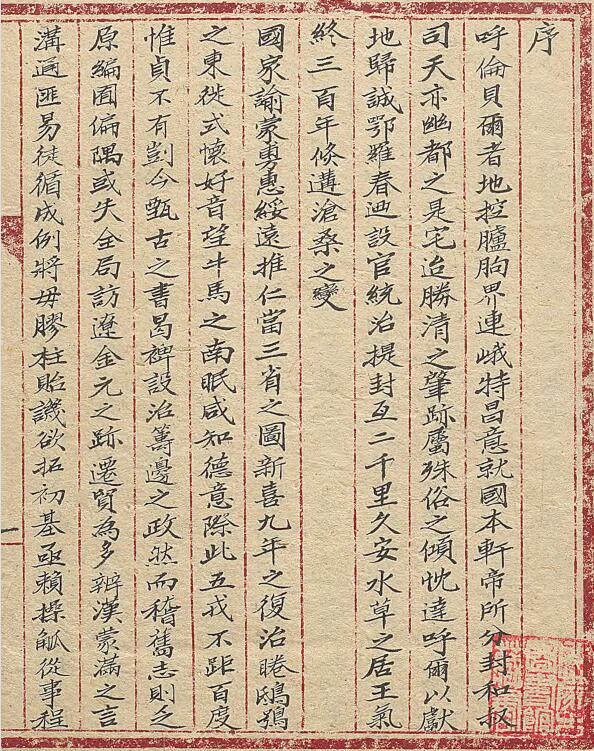 序
呼倫貝爾者地控臚朐界連峨特昌意就國本軒帝所分封和叔
司天亦幽都之是宅迨勝清之肇跡屬殊俗之傾忱達呼爾以獻
地歸誠鄂羅春迺設官統治提封亙二千里久安水草之居王氣
終三百年倏遘滄桑之變
國家諭蒙旉惠綏遠推仁當三省之圖新喜九年之復治睠鴟鴞
之東徙式懷好音望牛馬之南眠咸知德意際此五戎不距百度
惟貞不有剴今甄古之書曷裨設治籌邊之政然而稽舊志則乏
原編囿偏隅或失全局訪遼金元之跡遷貿為多辨漢蒙滿之言
溝通匪易徒循成例將毋膠柱貽譏欲拓初基亟賴操觚從事程